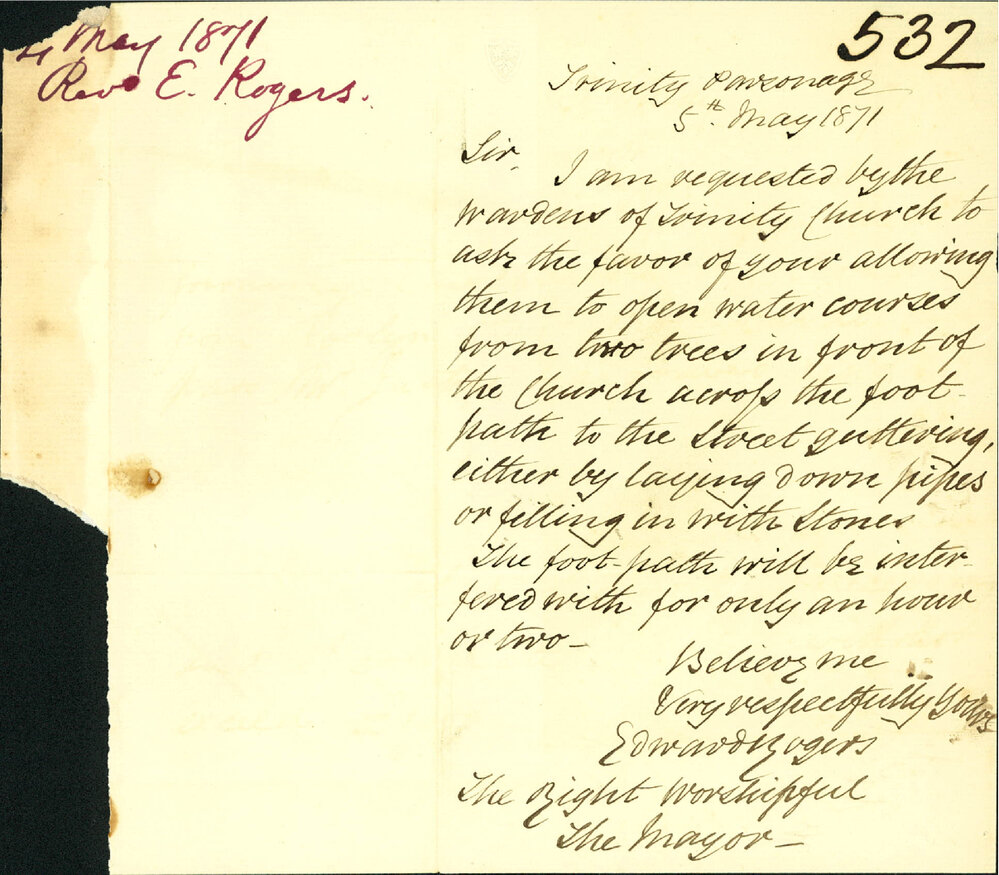 4 May 1871
Revd E. Rogers.
532
Trinity Parsonage
5th May 1871
Sir,
I am requested by the
Wardens of Trinity Church to
ask the favor of your allowing
them to open water courses
from two trees in front of
the Church across the foot-
path to the Street guttering,
either by laying down pipes
or filling in with Stones
The foot-path will be inter-
fered with for only an hour
or two—
Believe me
Very respectfully Yours
Edward Rogers
The Right Worshipful
The Mayor—